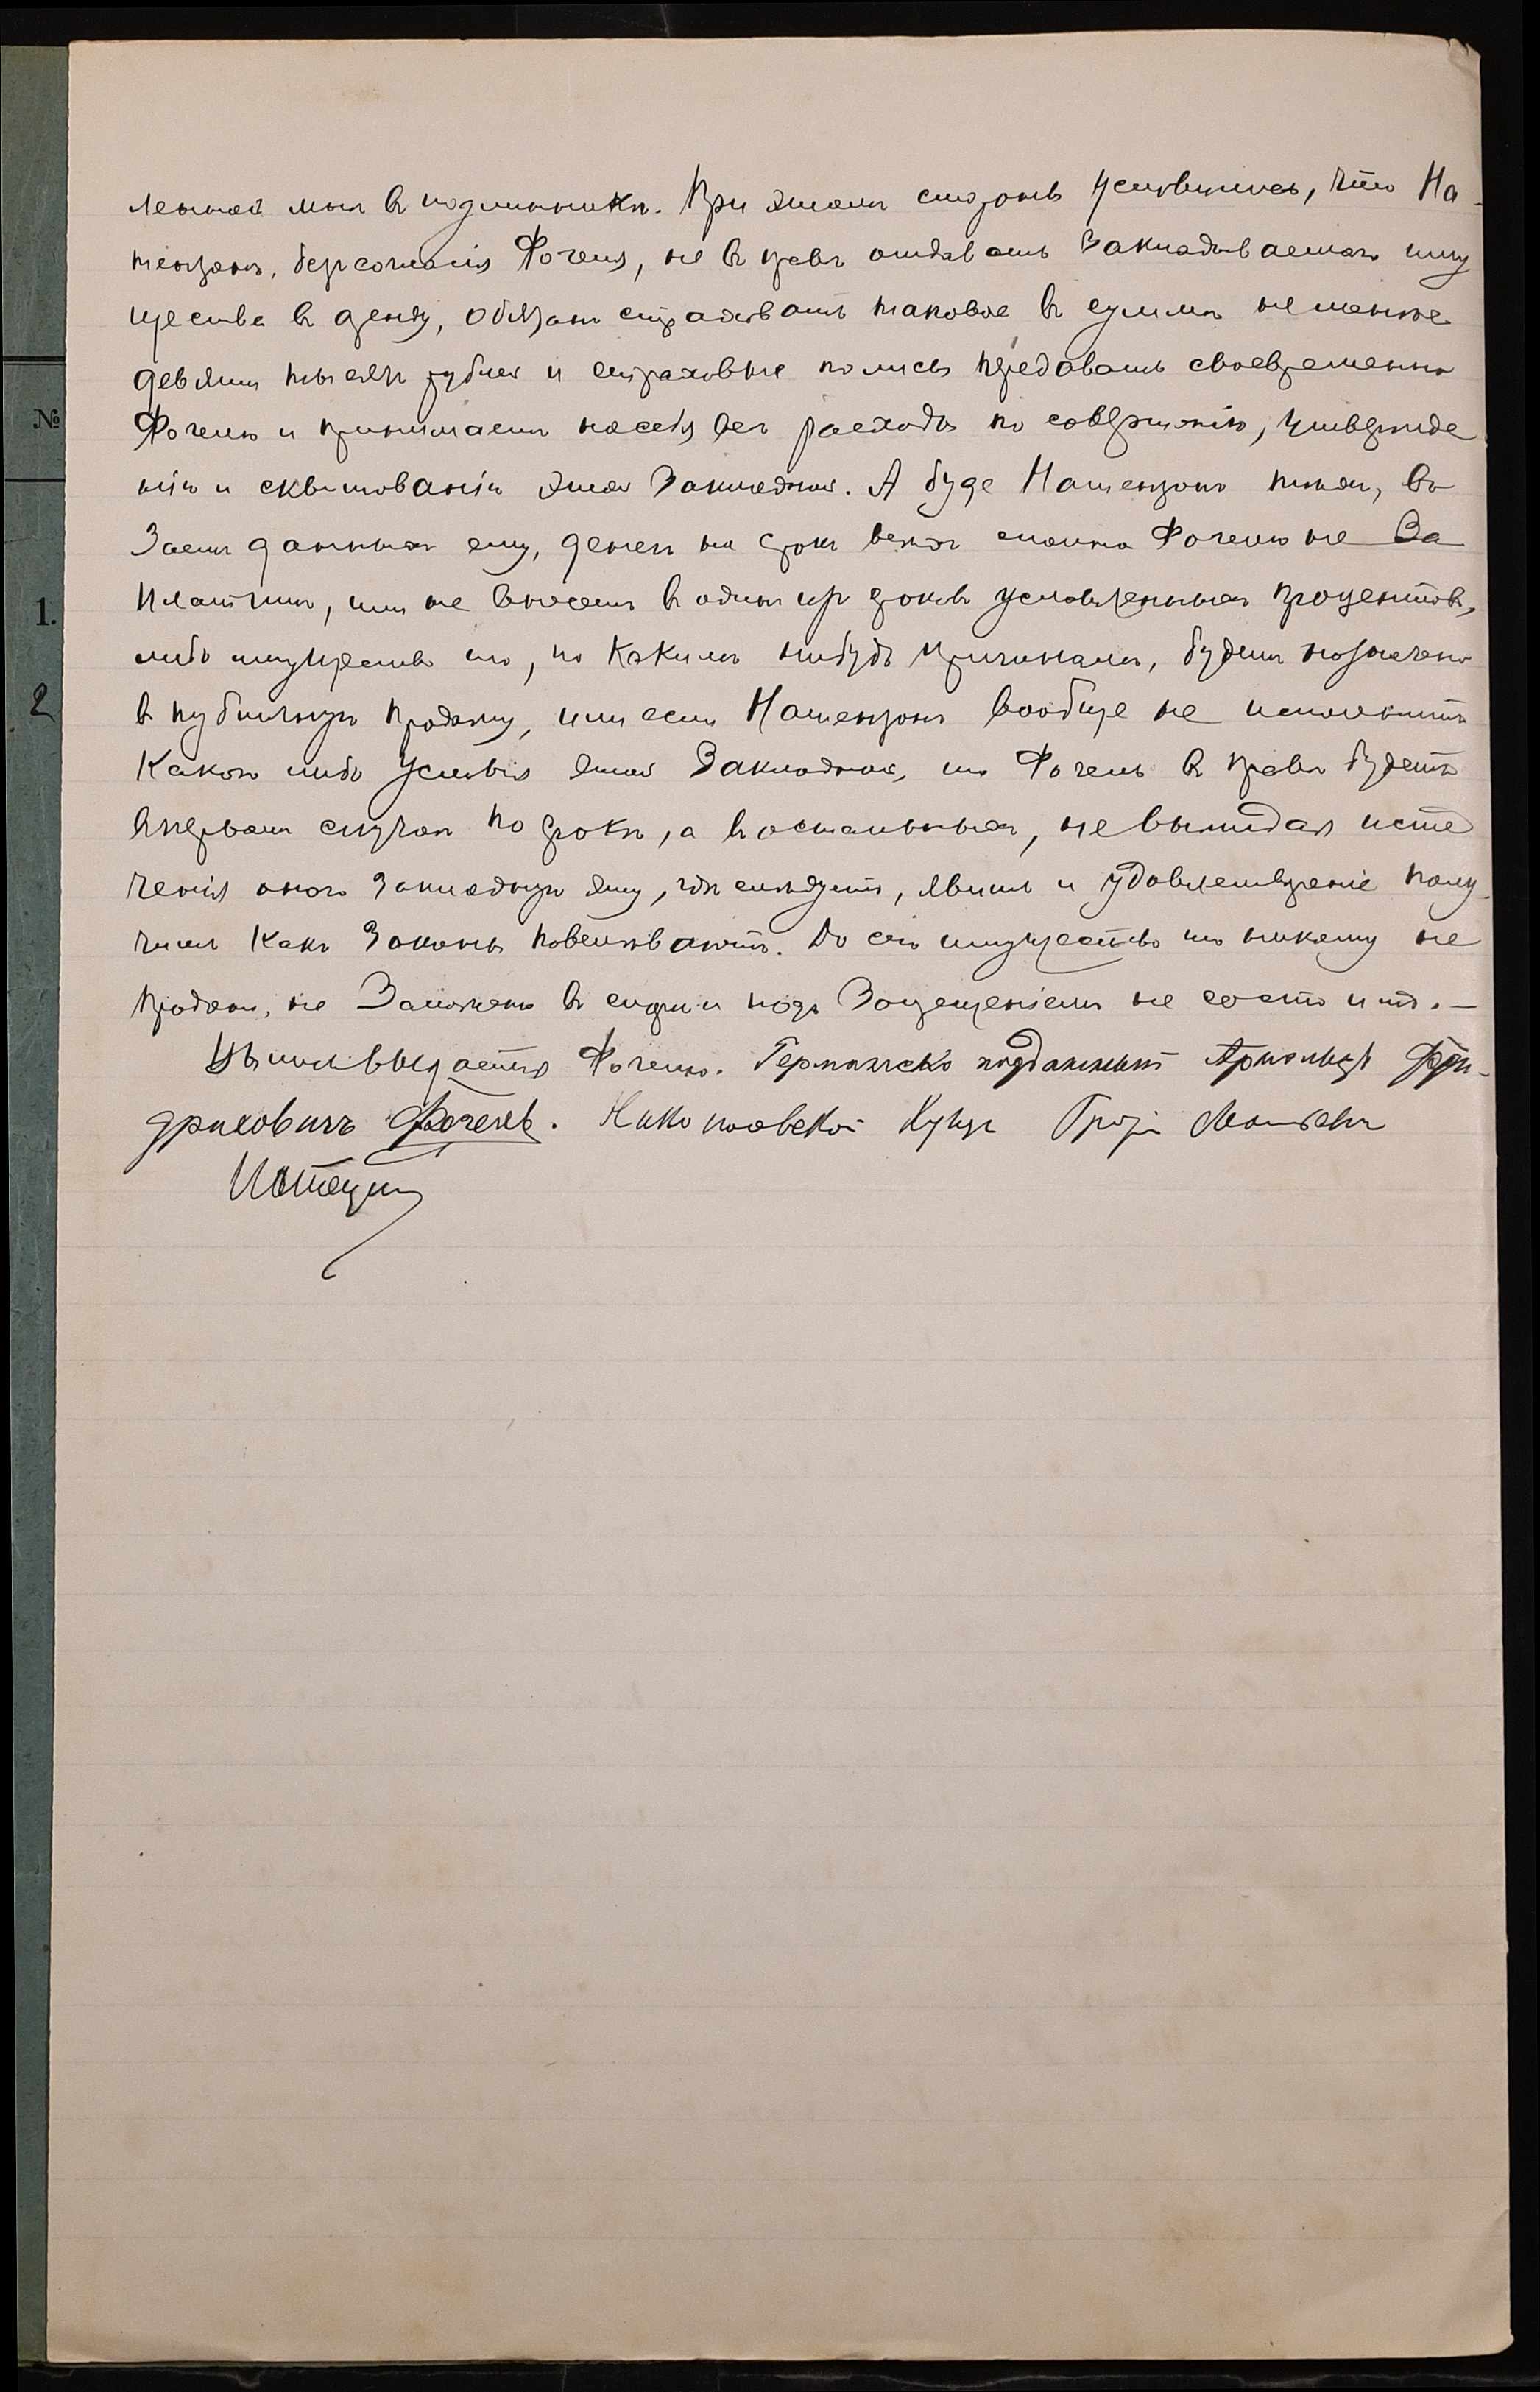 ленной мнѣ в подлинникѣ. При этомъ стороны условились, что На-
тензонъ, безъ согласія Фогеля, не в правѣ отдавать закладываемаго иму
щества в аренду, обязанъ страховать таковое в суммѣ не менѣе
девяти тысячъ рублей и страховые полисы передавать своевременно
Фогелю и принимаетъ на себя всѣ расходы по совершенію, утвержде
нію и сквитованію этой закладной. А буде Натензонъ тѣхъ, въ
заемъ данныхъ ему, денегъ на срокъ всѣхъ сполна Фогелю не за
платитъ, или не внесетъ в одинъ изъ сроковъ условленныхъ процентовъ,
либо имущество то, по какимъ нибудь причинамъ, будетъ назначено
в публичную продажу, или если Натензонъ вообще не исполнитъ
какого либо условія этой закладной, то Фогель в правѣ будетъ
в первомъ случаѣ по срокѣ, а в остальныхъ, не выжидая исте
ченія онаго закладную эту, гдѣ слѣдуетъ, явить и удовлетвореніе полу-
чить какъ законы повелѣваютъ. До сего имущество то никому не
продано, не заложено в спорѣ и подъ запрещеніемъ не состоитъ. —
Выпись выдается Фогелю. Германскій подданный Арнольдъ Фри-
дриховичъ Фогель. Николаевскій Купецъ